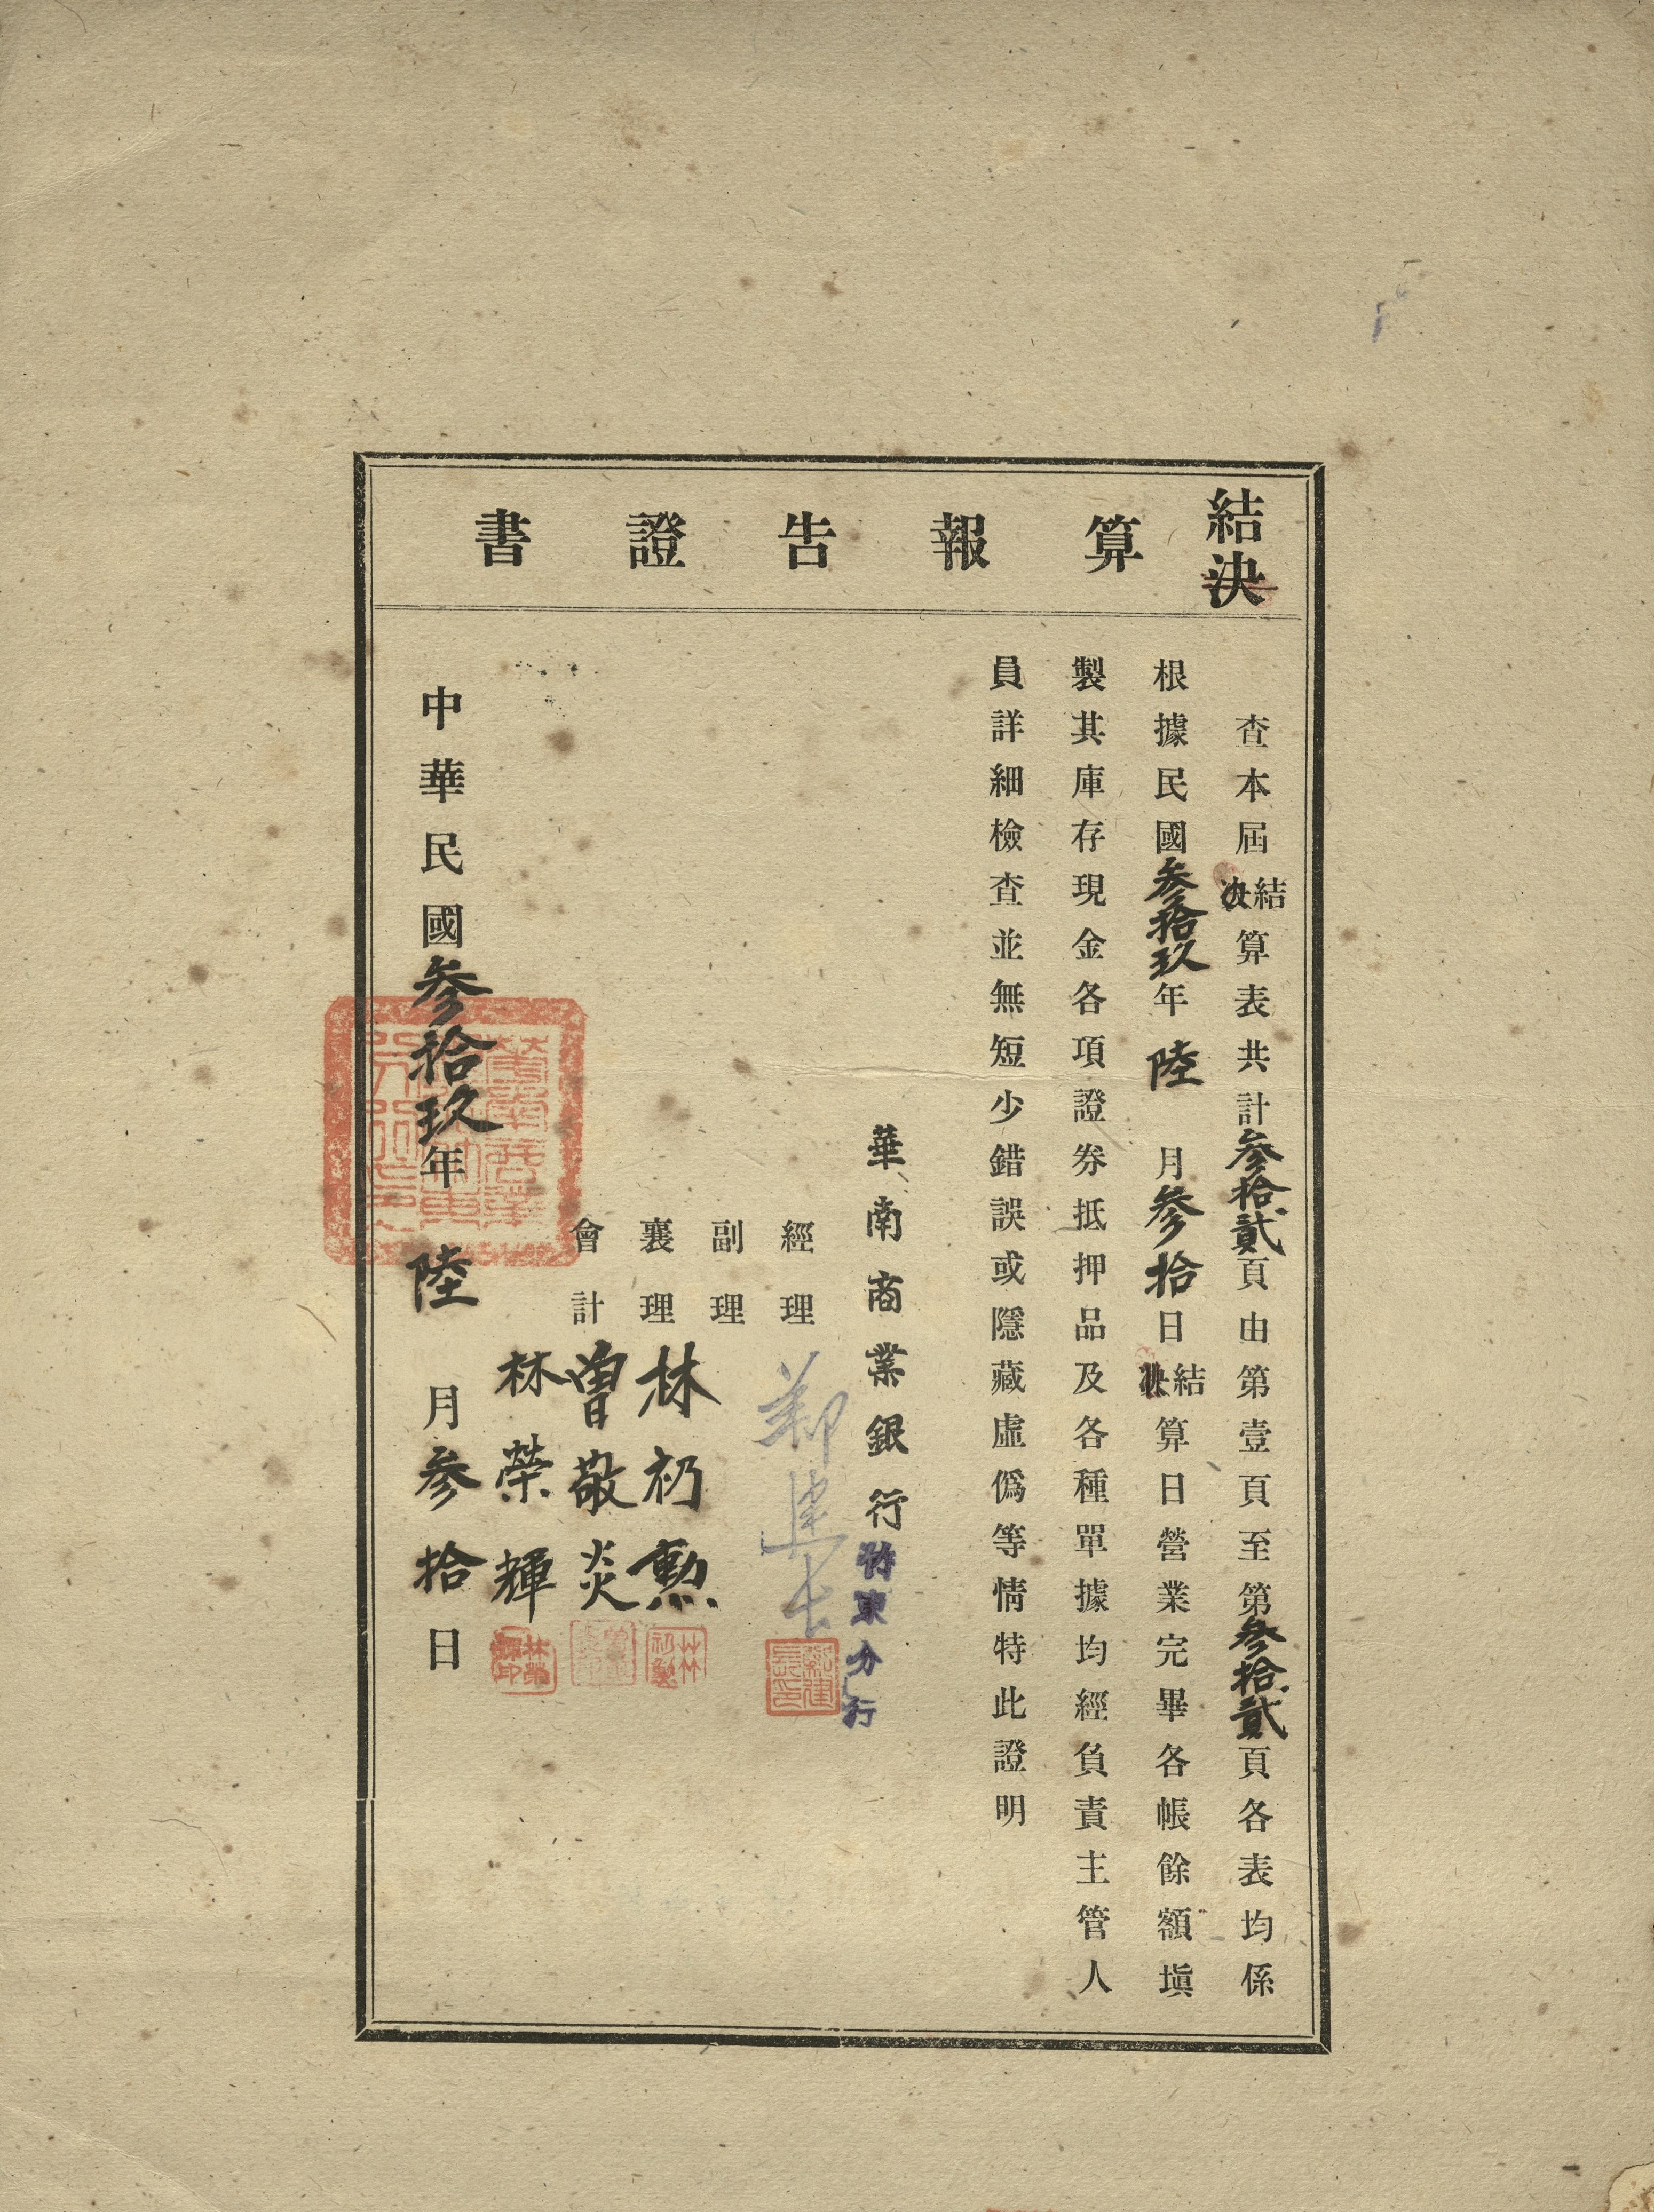 結決算報告證書
查本屆結決算表共計參拾貳頁由第壹頁至第參拾貳頁各表均係
根據民國參拾玖年陸月參拾日結決算日營業完畢各帳餘額塡
製其庫存現金各項證券抵押品及各種單據均經負責主管人
員詳細檢查並無短少錯誤或隱藏虛僞等情特此證明
華南商業銀行竹東分行
經理 鄭建長
副理
襄理 林礽勲
會計 曾敬炎
林榮輝
中華民國參拾玖年陸月參拾日